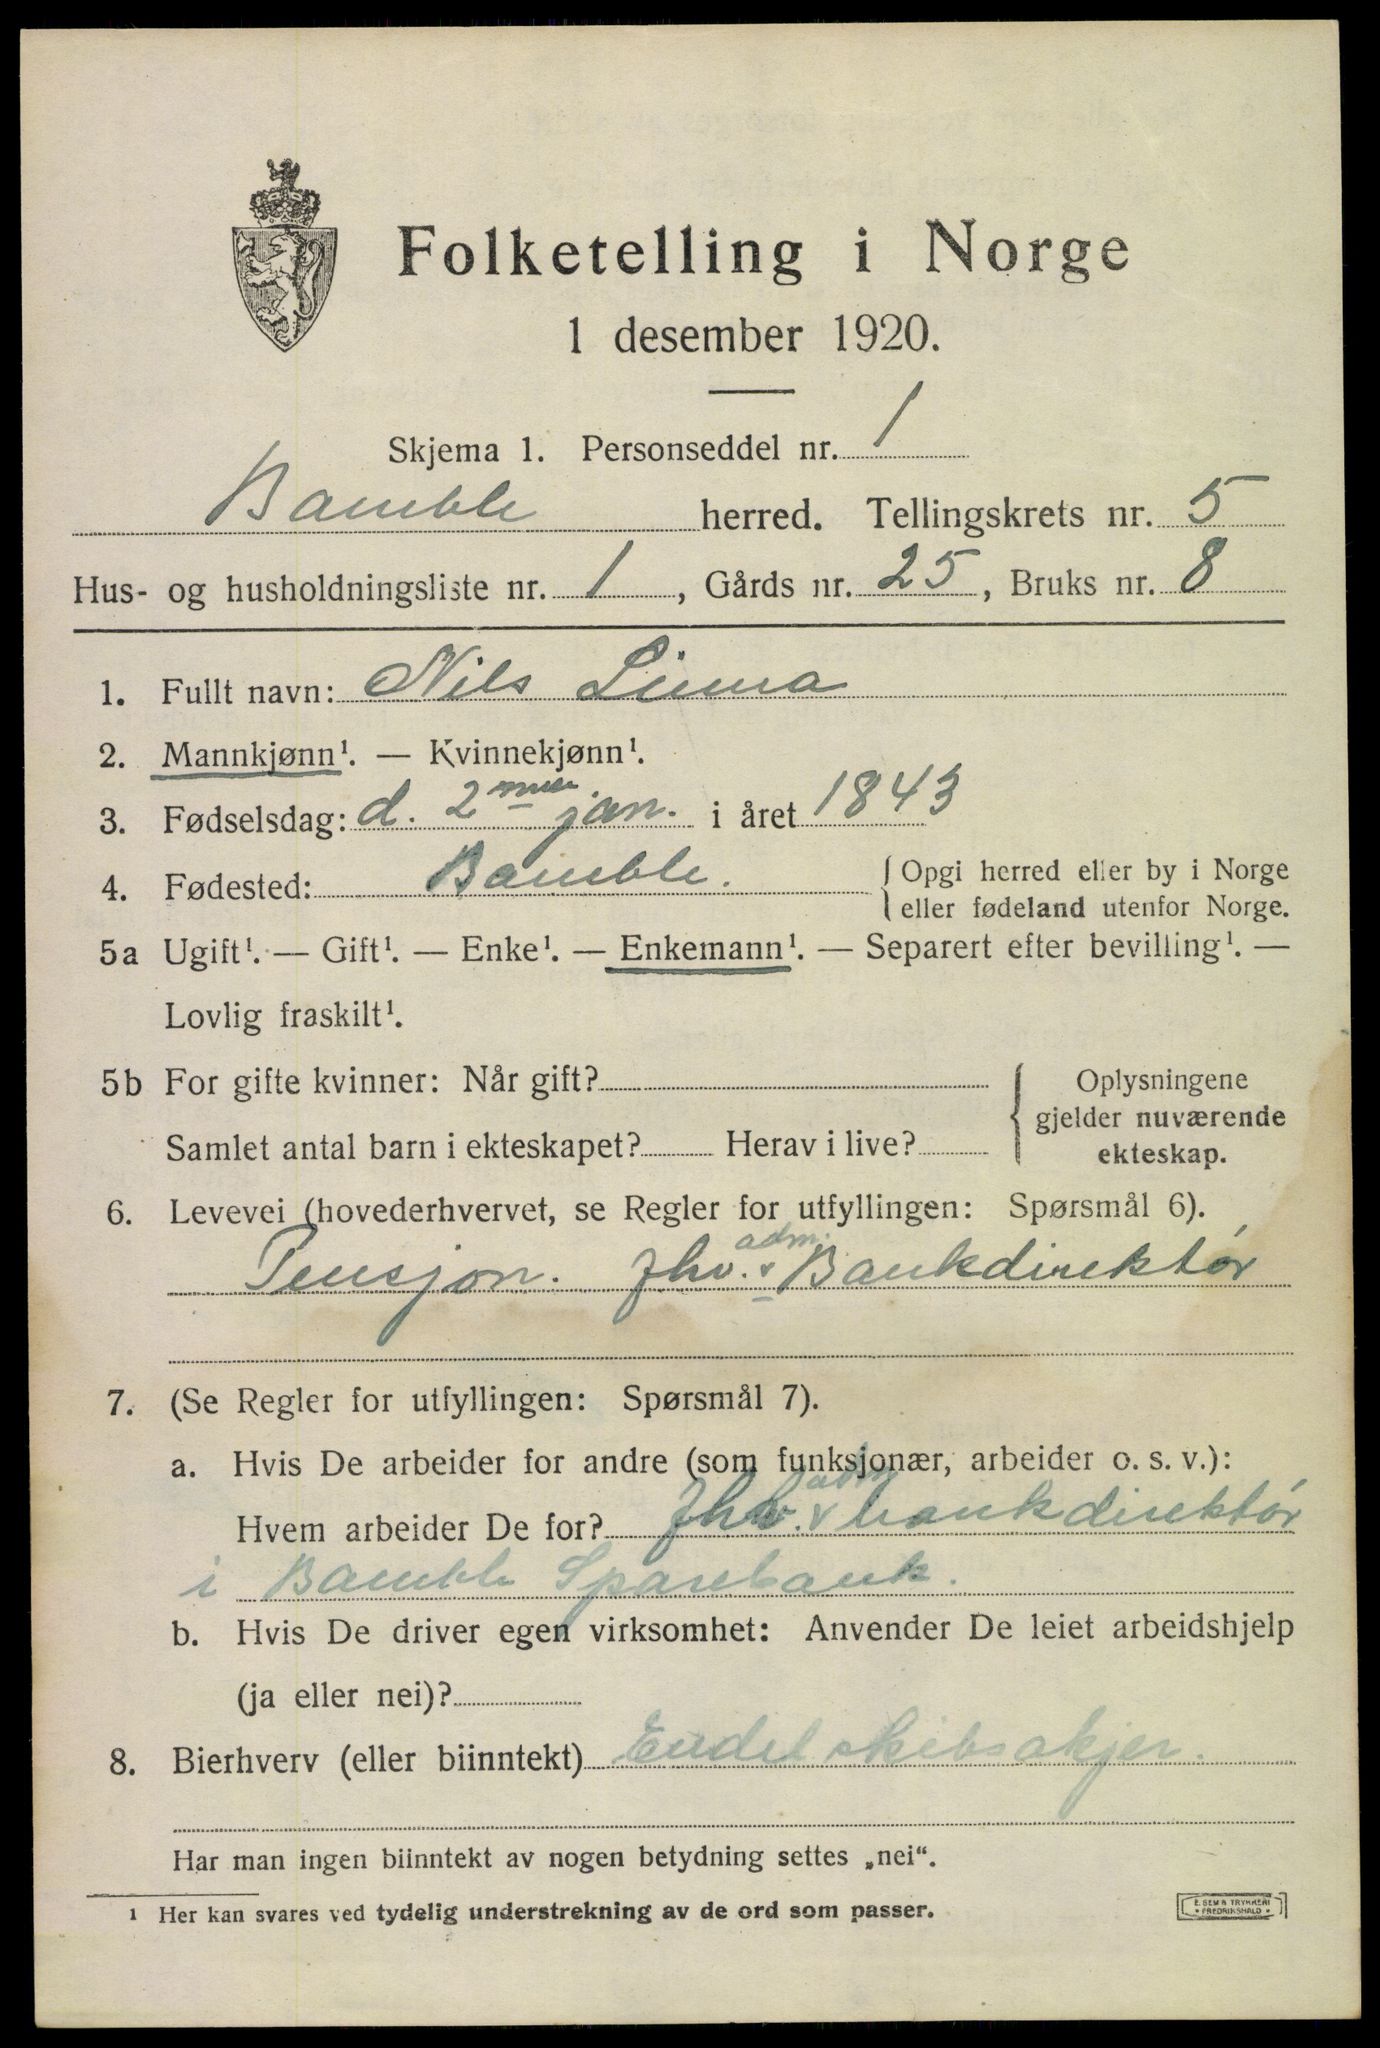 Folketelling i Norge
1 desember 1920.
Skjema 1. Personseddel nr. 1
Bamble herred. Tellingskrets nr. 5
Hus- og husholdningsliste nr. 1, Gårds nr. 25, Bruks nr. 8
1. Fullt navn: Nils Linna
2. Mannkjønn¹. — Kvinnekjønn¹.
3. Fødselsdag: d. 2 jan. i året 1843
4. Fødested: Bamble. { Opgi herred eller by i Norge
eller fødeland utenfor Norge.
5a Ugift¹. — Gift¹. — Enke¹. — Enkemann¹. — Separert efter bevilling¹. —
Lovlig fraskilt¹.
5b For gifte kvinner: Når gift? { Oplysningene
gjelder nuværende
ekteskap.
Samlet antal barn i ekteskapet? Herav i live?
6. Levevei (hovederhvervet, se Regler for utfyllingen: Spørsmål 6).
adm.
Pensjon. fhv. v Bankdirektør
7. (Se Regler for utfyllingen: Spørsmål 7).
a. Hvis De arbeider for andre (som funksjonær, arbeider o. s. v.):
adm
Hvem arbeider De for? fhv. v bankdirektør
i Bamble Sparebank.
b. Hvis De driver egen virksomhet: Anvender De leiet arbeidshjelp
(ja eller nei)?
8. Bierhverv (eller biinntekt) Endel skibsakjer.
Har man ingen biinntekt av nogen betydning settes „nei“.
¹ Her kan svares ved tydelig understrekning av de ord som passer.
E. SEM'S TRYKKERI
FREDRIKSHALD